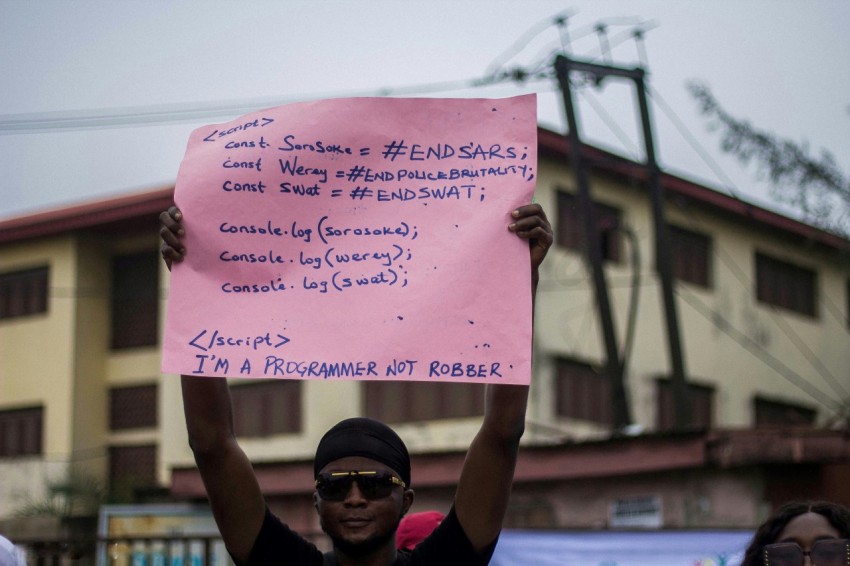 <script>
const SoroSoke = #ENDSARS;
const Werey = #ENDPOLICEBRUTALITY;
const swat = #ENDSWAT;
console.log(sorosoke);
console.log(werey);
console.log(swat);
</script>
I'M A PROGRAMMER NOT ROBBER.